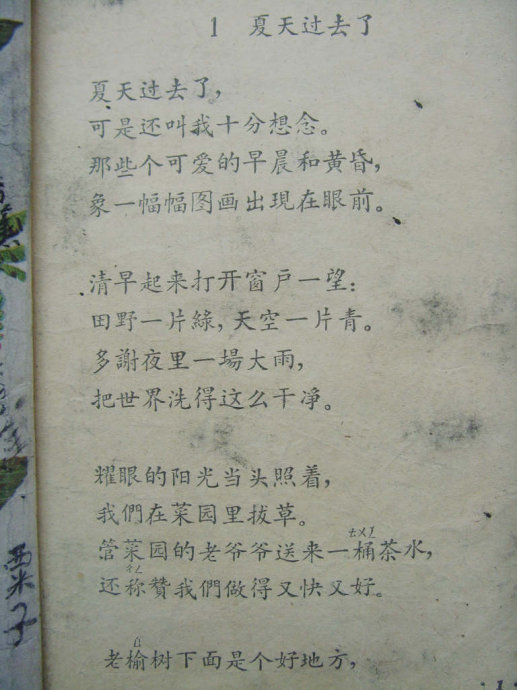 1 夏天过去了
夏天过去了，
可是还叫我十分想念。
那些个可爱的早晨和黄昏，
象一幅幅图画出現在眼前。
清早起来打开窗户一望：
田野一片綠，天空一片青。
多謝夜里一場大雨，
把世界洗得这么干净。
耀眼的阳光当头照着，
我們在菜园里拔草。
管菜园的老爷爷送来一桶茶水，
还称贊我們做得又快又好。
老榆树下面是个好地方，
粟子